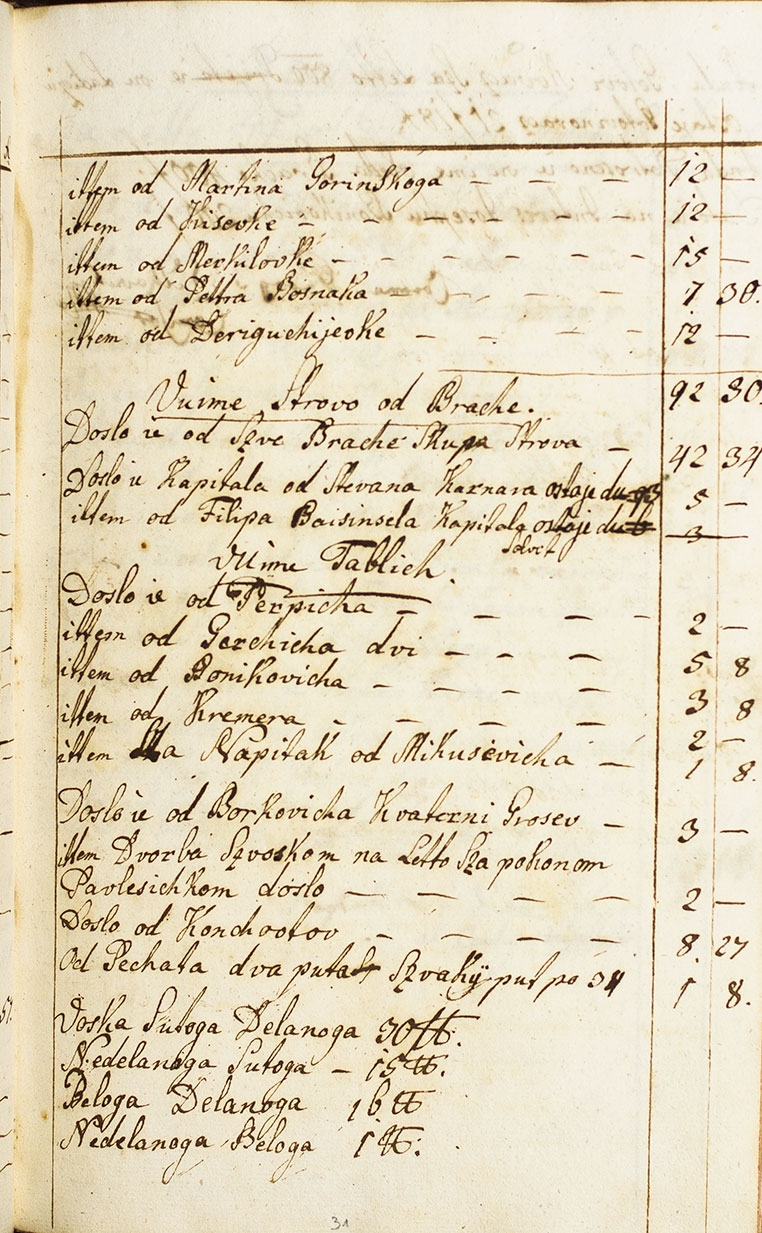 ittem od Martina Gorinskoga – – – – 12 —
ittem od Kusevke – – – – – – 12 —
ittem od Merkilovke – – – – – – 15 —
ittem od Pettra Bosnaka – – – – 7 30.
ittem od Deriguchijevke – – – – 12 —
Vuime Strovo od Brache. 92 30.
Doslo ie od Szve Brache Skupa Strova – 42 34
Doslo ie Kapitala od Stevana Karnara ostaje du 93 5 —
ittem od Filipa Baisinsela Kapitala ostaje du 3
Solvit
Vuime Tablich.
Doslo ie od Perpicha – – – – 2 —
ittem od Gerchicha dvi – – – 5 8
ittem od Bonikovicha – – – – 3 8
ittem od Kremera – – – – 2 —
ittem Sza Napitak od Mikusevicha – 1 8.
Doslo ie od Borkovicha Kvaterni Grosev – 3 —
ittem Dvorba Szvoskom na Letto Sza pokonom
Pavlesichkom doslo – – – – 2 —
Doslo od Kondrotov – – – – 8. 27
Od Pechata dva puta Szvaky put po 34 1 8.
Voska Sutoga Delanoga 30 ℔.
Nedelanoga Sutoga – 15 ℔.
Beloga Delanoga 16 ℔
Nedelanoga Beloga 1 ℔.
31